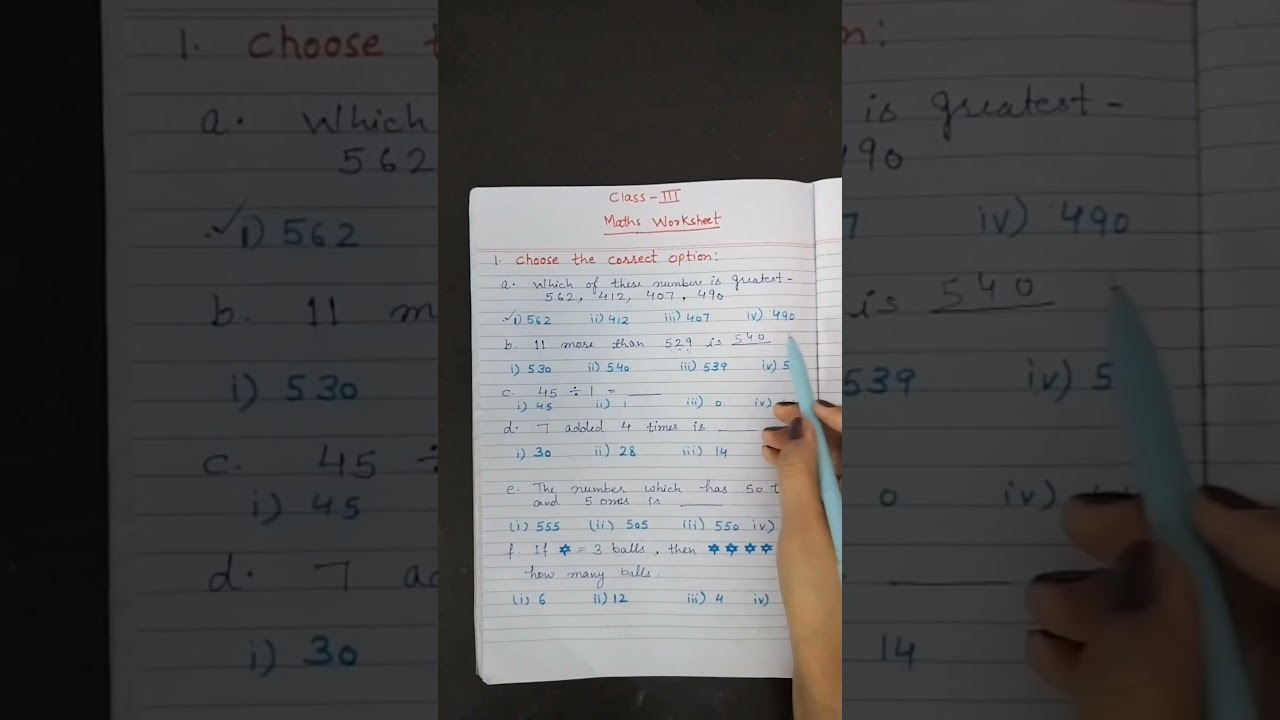 Class - III
Maths Worksheet
1. Choose the correct option:
a. Which of these number is greatest-
562, 412, 407, 490
✓i) 562 ii) 412 iii) 407 iv) 490
b. 11 more than 529 is 540
i) 530 ii) 540 iii) 539 iv) 5
c. 45 ÷ 1 = ____
i) 45 ii) 1 iii) 0 iv)
d. 7 added 4 times is ____
i) 30 ii) 28 iii) 14
e. The number which has 50 t
and 5 ones is ____
(i) 555 (ii) 505 (iii) 550 iv)
f. If ✡ = 3 balls, then ✡ ✡ ✡ ✡
how many balls.
(i) 6 ii) 12 iii) 4 iv)